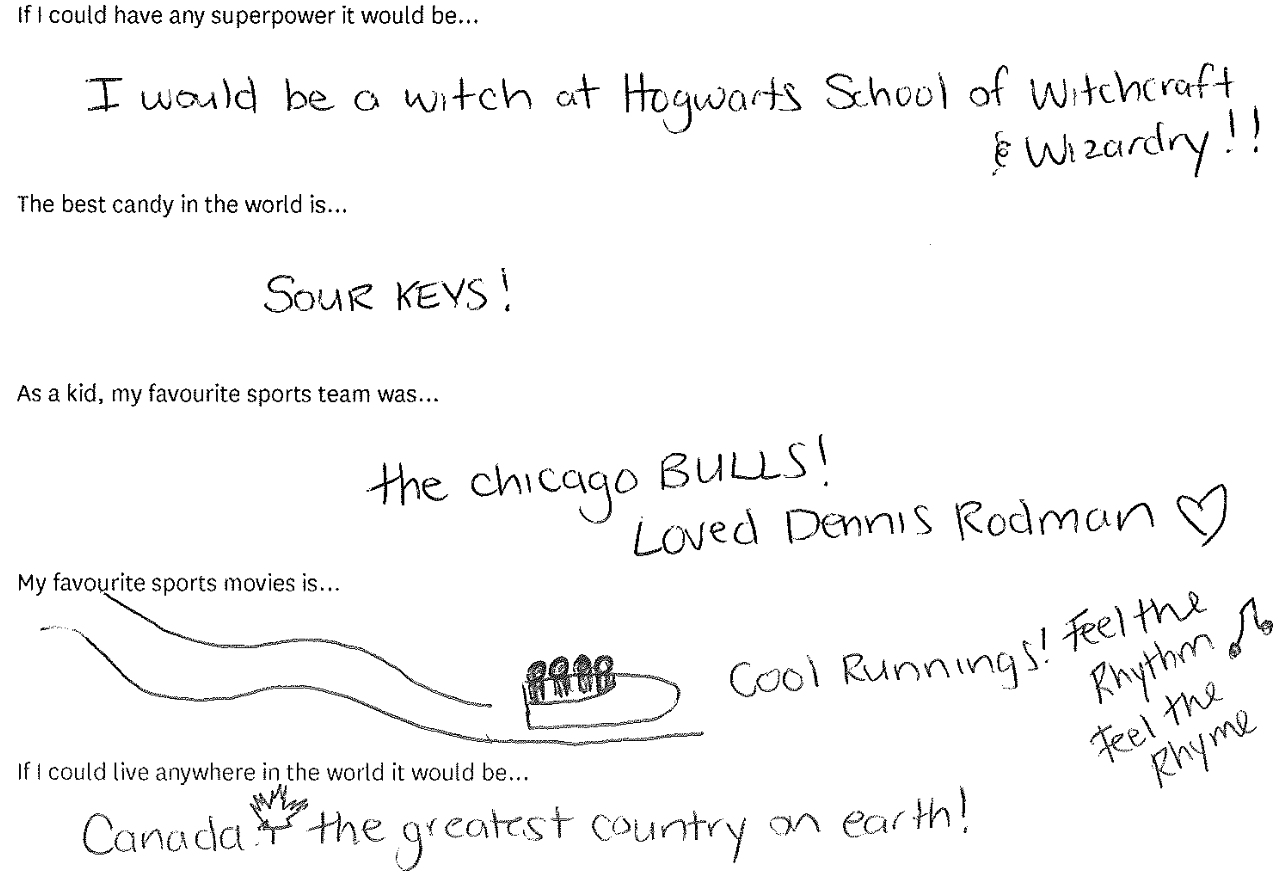 If I could have any superpower it would be...
I would be a witch at Hogwarts School of Witchcraft
& Wizardry!!
The best candy in the world is...
SOUR KEYS!
As a kid, my favourite sports team was...
the chicago BULLS!
Loved Dennis Rodman
My favourite sports movies is...
Cool Runnings!
Feel the
Rhythm
Feel the
Rhyme
If I could live anywhere in the world it would be...
Canada the greatest country on earth!